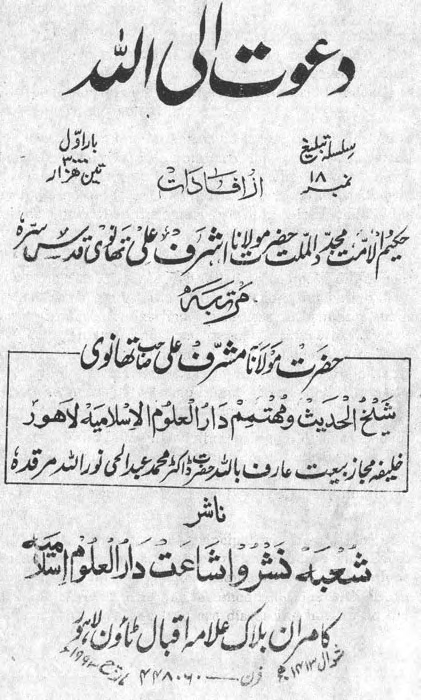 دعوت الی اللہ
سلسلہ تبلیغ
نمبر ۱۸
بار اوّل
۳۰۰۰
تین ہزار
از افادات
حکیم الامت مجدّد الملت حضرت مولانا اشرف علی تھانوی قدس سرہ
مرتبہ
حضرت مولانا مشرف علی صاحب تھانوی
شیخ الحدیث و مہتمم دار العلوم الاسلامیہ لاہور
خلیفہ مجاز بیعت عارف باللہ حضرت ڈاکٹر محمد عبدالحی نور اللہ مرقدہ
ناشر
شعبہ نشر و اشاعت دار العلوم اسلامیہ
کامران بلاک علامہ اقبال ٹاؤن لاہور
شوال ۱۴۱۳ھ فون ۴۴۸۰۶۰ مارچ ۱۹۹۳ء